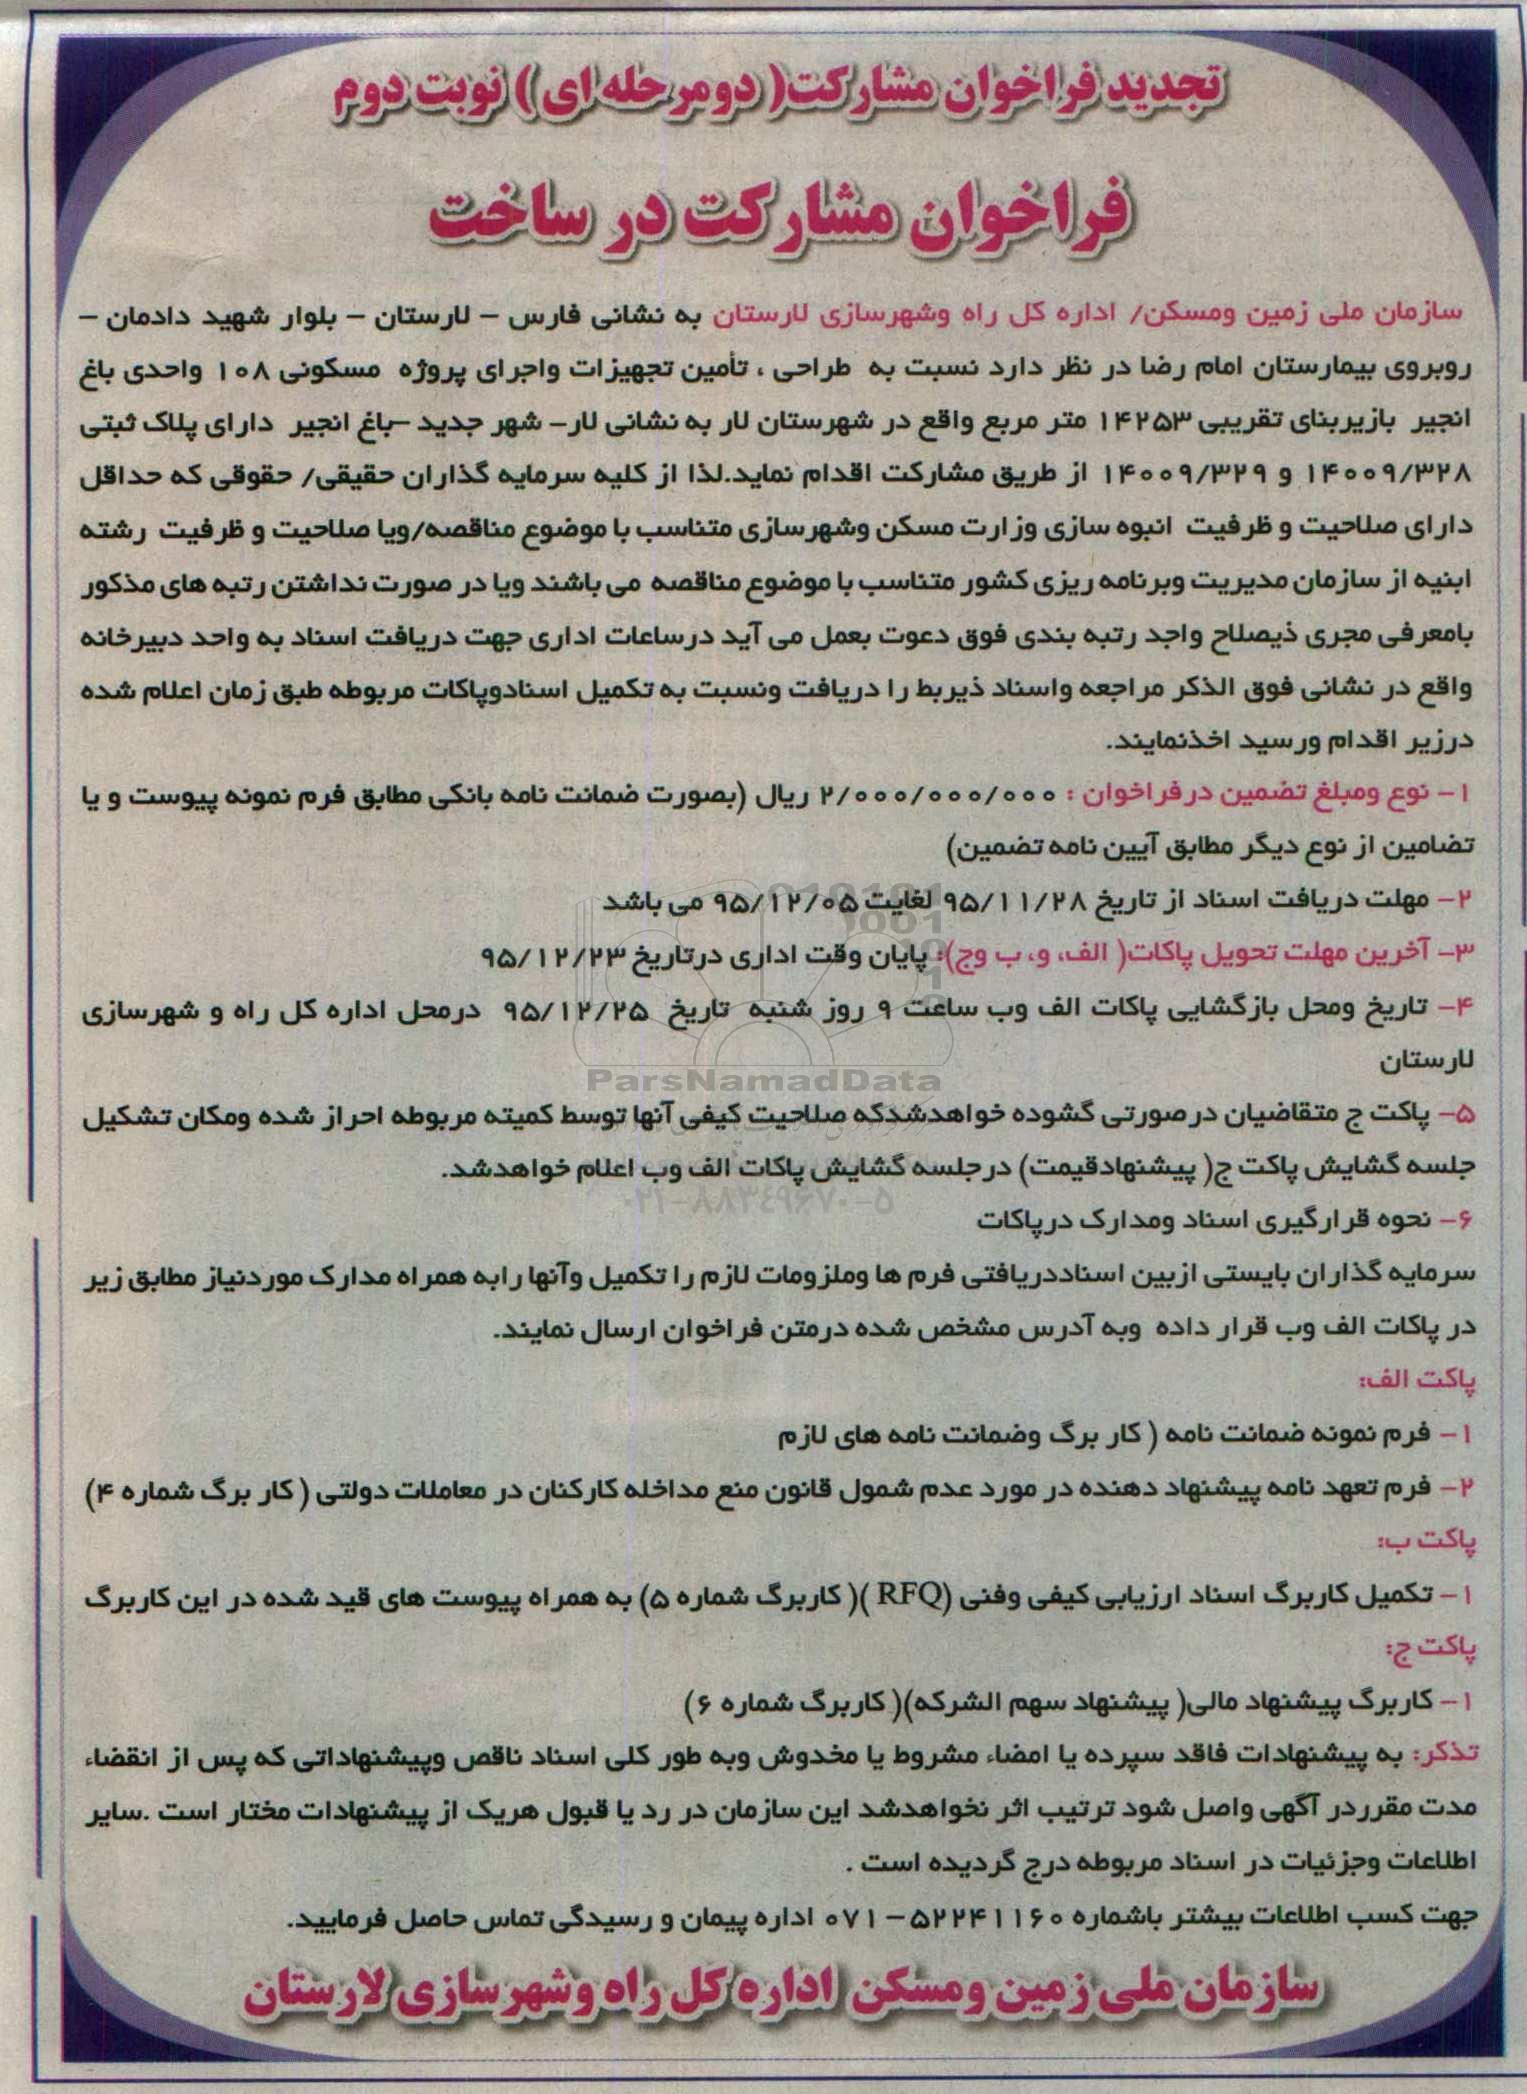 تجدید فراخوان مشارکت( دومرحله ای ) نوبت دوم
فراخوان مشارکت در ساخت
سازمان ملی زمین ومسکن/ اداره کل راه وشهرسازی لارستان به نشانی فارس – لارستان – بلوار شهید دادمان –
روبروی بیمارستان امام رضا در نظر دارد نسبت به طراحی ، تأمین تجهیزات واجرای پروژه مسکونی ۱۰۸ واحدی باغ
انجیر بازیربنای تقریبی ۱۴۲۵۳ متر مربع واقع در شهرستان لار به نشانی لار– شهر جدید –باغ انجیر دارای پلاک ثبتی
۱۴۰۰۹/۳۲۸ و ۱۴۰۰۹/۳۲۹ از طریق مشارکت اقدام نماید.لذا از کلیه سرمایه گذاران حقیقی/ حقوقی که حداقل
دارای صلاحیت و ظرفیت انبوه سازی وزارت مسکن وشهرسازی متناسب با موضوع مناقصه/ویا صلاحیت و ظرفیت رشته
ابنیه از سازمان مدیریت وبرنامه ریزی کشور متناسب با موضوع مناقصه می باشند ویا در صورت نداشتن رتبه های مذکور
بامعرفی مجری ذیصلاح واجد رتبه بندی فوق دعوت بعمل می آید درساعات اداری جهت دریافت اسناد به واحد دبیرخانه
واقع در نشانی فوق الذکر مراجعه واسناد ذیربط را دریافت ونسبت به تکمیل اسنادوپاکات مربوطه طبق زمان اعلام شده
درزیر اقدام ورسید اخذنمایند.
۱– نوع ومبلغ تضمین درفراخوان : ۲/۰۰۰/۰۰۰/۰۰۰ ریال (بصورت ضمانت نامه بانکی مطابق فرم نمونه پیوست و یا
تضامین از نوع دیگر مطابق آیین نامه تضمین)
۲– مهلت دریافت اسناد از تاریخ ۹۵/۱۱/۲۸ لغایت ۹۵/۱۲/۰۵ می باشد
۳– آخرین مهلت تحویل پاکات( الف، و، ب وج): پایان وقت اداری درتاریخ ۹۵/۱۲/۲۳
۴– تاریخ ومحل بازگشایی پاکات الف وب ساعت ۹ روز شنبه تاریخ ۹۵/۱۲/۲۵ درمحل اداره کل راه و شهرسازی
لارستان
ParsNamadData
۵– پاکت ج متقاضیان درصورتی گشوده خواهدشدکه صلاحیت کیفی آنها توسط کمیته مربوطه احراز شده ومکان تشکیل
جلسه گشایش پاکت ج( پیشنهادقیمت) درجلسه گشایش پاکات الف وب اعلام خواهدشد.
۰۲۱–۸۸۳۴۹۶۷۰–۵
۶– نحوه قرارگیری اسناد ومدارک درپاکات
سرمایه گذاران بایستی ازبین اسناددریافتی فرم ها وملزومات لازم را تکمیل وآنها رابه همراه مدارک موردنیاز مطابق زیر
در پاکات الف وب قرار داده وبه آدرس مشخص شده درمتن فراخوان ارسال نمایند.
پاکت الف:
۱– فرم نمونه ضمانت نامه ( کار برگ وضمانت نامه های لازم
۲– فرم تعهد نامه پیشنهاد دهنده در مورد عدم شمول قانون منع مداخله کارکنان در معاملات دولتی ( کار برگ شماره ۴)
پاکت ب:
۱– تکمیل کاربرگ اسناد ارزیابی کیفی وفنی (RFQ )( کاربرگ شماره ۵) به همراه پیوست های قید شده در این کاربرگ
پاکت ج:
۱– کاربرگ پیشنهاد مالی( پیشنهاد سهم الشرکه)( کاربرگ شماره ۶)
تذکر: به پیشنهادات فاقد سپرده یا امضاء مشروط یا مخدوش وبه طور کلی اسناد ناقص وپیشنهاداتی که پس از انقضاء
مدت مقرردر آگهی واصل شود ترتیب اثر نخواهدشد این سازمان در رد یا قبول هریک از پیشنهادات مختار است .سایر
اطلاعات وجزئیات در اسناد مربوطه درج گردیده است .
جهت کسب اطلاعات بیشتر باشماره ۵۲۲۴۱۱۶۰–۰۷۱ اداره پیمان و رسیدگی تماس حاصل فرمایید.
سازمان ملی زمین ومسکن اداره کل راه وشهرسازی لارستان